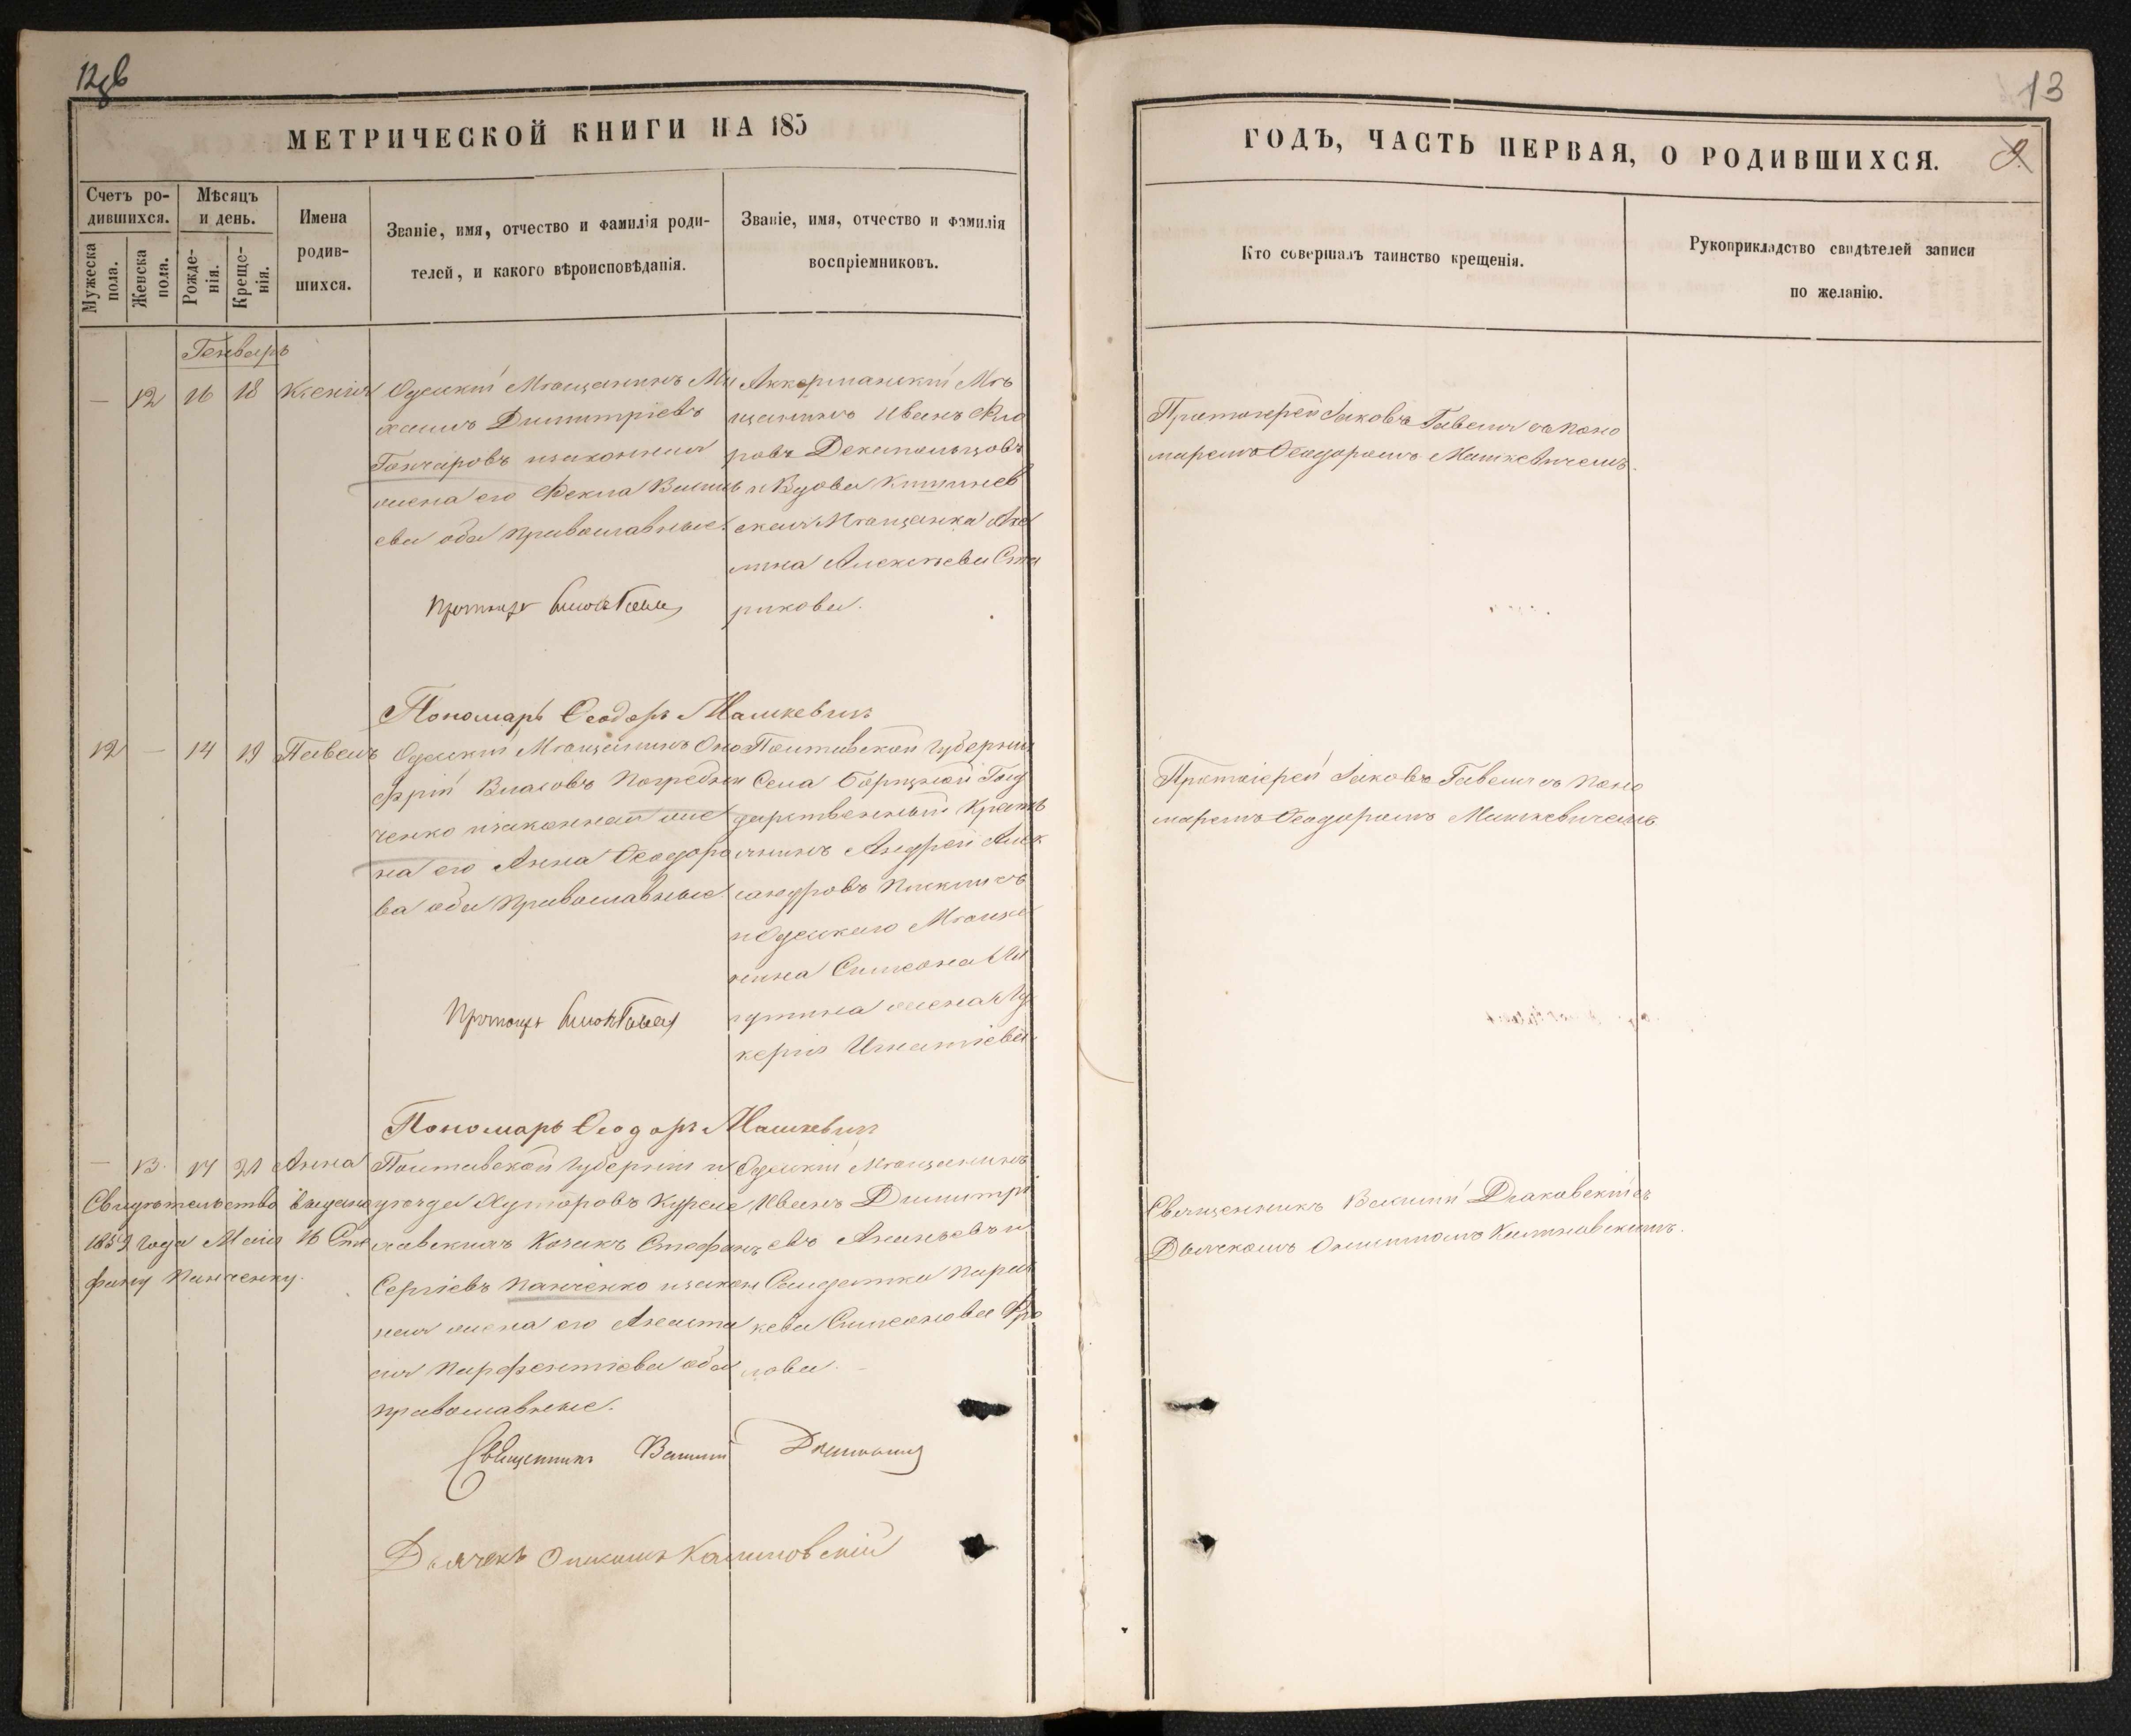 12об
МЕТРИЧЕСКОЙ КНИГИ НА 185
Счетъ ро-
дившихся.
Мужеска
пола.
Женска
пола.
Мѣсяцъ
и день.
Рожде-
нія.
Креще-
нія.
Имена
родив-
шихся.
Званіе, имя, отчество и фамилія роди-
телей, и какого вѣроисповѣданія.
Званіе, имя, отчество и фамилія
воспріемниковъ.
Генварь
— 12 16 18 Ксенія
Одесскій Мѣщанинъ Ми
хаилъ Димитріевъ
Гончаровъ изаконная
жена его Фекла Василь
ева оба православные.
Аккерманскій Мѣ
щанинъ Иванъ
ровъ
и Вдова Кишинев
ская Мѣщанка Аке
лина Алексѣева Ста
рикова.
Пономарь Ѳеодоръ Машкевичъ
12 — 14 19 Павелъ
Одесскій Мѣщанинъ Оно
фрій Власовъ Погребни
ченко изаконная же
на его Анна Ѳеодоро
ва оба Православные.
Полтавской Губерніи
Села Борицкой Госу
дарственный Крестья
нинъ Андрей Алек
сандровъ
и Одесскаго Мѣща
нина Симеона
жена
керія Игнатіева
Пономарь Ѳеодоръ Машкевичъ
— 13. 17 21 Анна
Полтавской Губерніи и
уѣзда Хуторовъ Курсе
лавскихъ Козакъ Стефанъ
Сергіевъ Панченко изакон
ная жена его Анаста
сія Парфентіева оба
православные.
Одесскій Мѣщанинъ
Иванъ Димитрі
евъ Ананьевъ и
Солдатка Парас
кева Симеонова
лова.
Свидѣтельство выдано
1859 Года Маія 16 Сте
фану Панченку.
Священникъ Василій
Дьячекъ Калиновскій
13
ГОДЪ, ЧАСТЬ ПЕРВАЯ, О РОДИВШИХСЯ.
9.
Кто совершалъ таинство крещенія.
Рукоприкладство свидѣтелей записи
по желанію.
Протоіерей Іаковъ Гавель съ Поно
маремъ Ѳеодоромъ Машкевичемъ.
Протоіерей Іаковъ Гавель съ Поно
маремъ Ѳеодоромъ Машкевичемъ
Священникъ Василій Дьяковскій съ
Дьячкомъ Калиновскимъ.